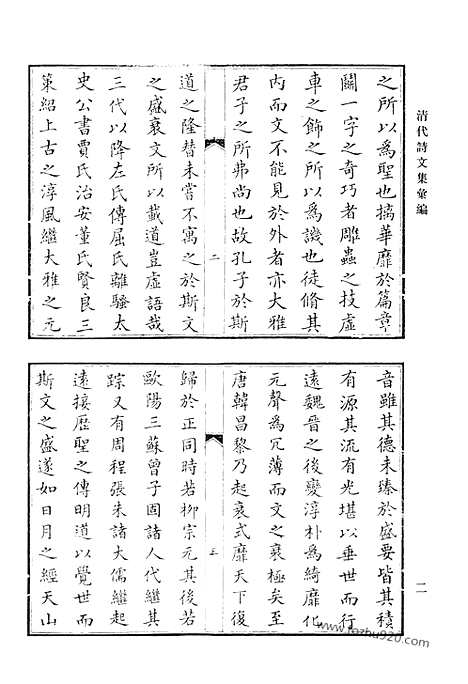 清代詩文集彙編
之所以為聖也摛華靡於篇章
闘一字之奇巧者雕蟲之技虛
車之飾之所以為譏也徒脩其
內而文不能見於外者亦大雅
君子之所弗尚也故孔子於斯
二
道之隆替未嘗不寓之於斯文
之盛衰文所以載道豈虛語哉
三代以降左氏傳屈氏離騷太
史公書賈氏治安董氏賢良三
策紹上古之淳風繼大雅之元
音雖其德未臻於盛要皆其積
有源其流有光堪以垂世而行
遠魏晉之後變淳朴為綺靡化
元聲為冗薄而文之衰極矣至
唐韓昌黎乃起衰式靡天下復
三
歸於正同時若柳宗元其後若
歐陽三蘇曾子固諸人代繼其
踪又有周程張朱諸大儒繼起
遠接歷聖之傳明道以覺世而
斯文之盛遂如日月之經天山
二
www.fozhu920.com